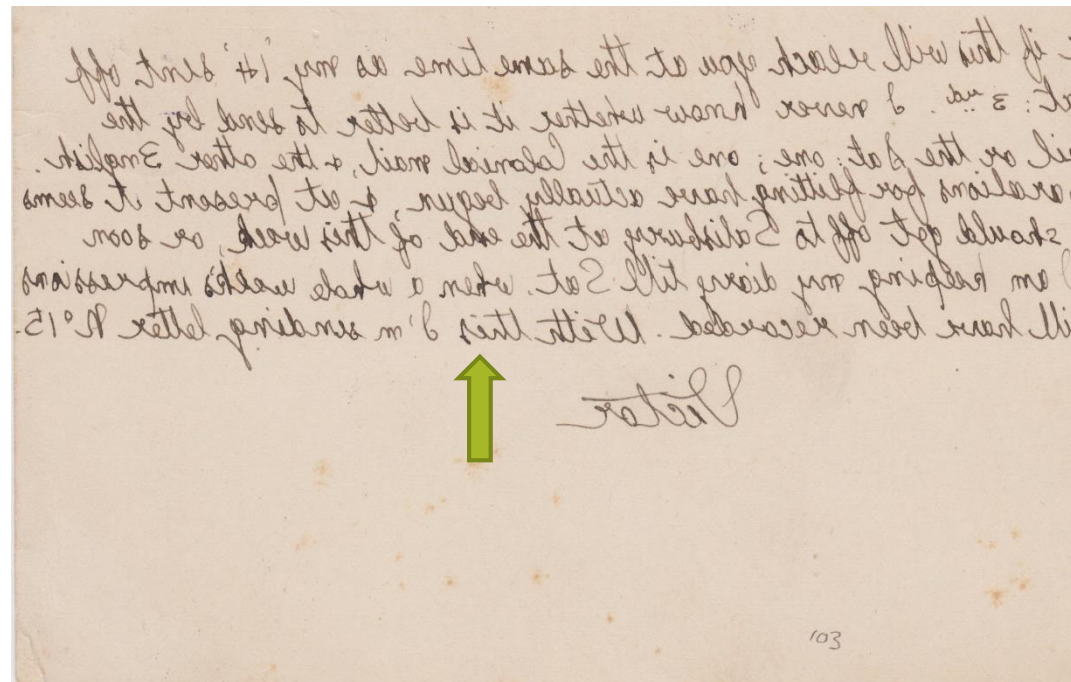 if this will reach you at the same time as my '14' sent off
3rd. I never know whether it is better to send by the
or the Sat: one; one is the Colonial mail, & the other English.
arations for flitting have actually begun, & at present it seems
should get off to Salisbury at the end of this week, or soon
I am keeping my diary till Sat. when a whole week's impressions
ill have been recorded. With this I'm sending letter No 15.
Victor
103